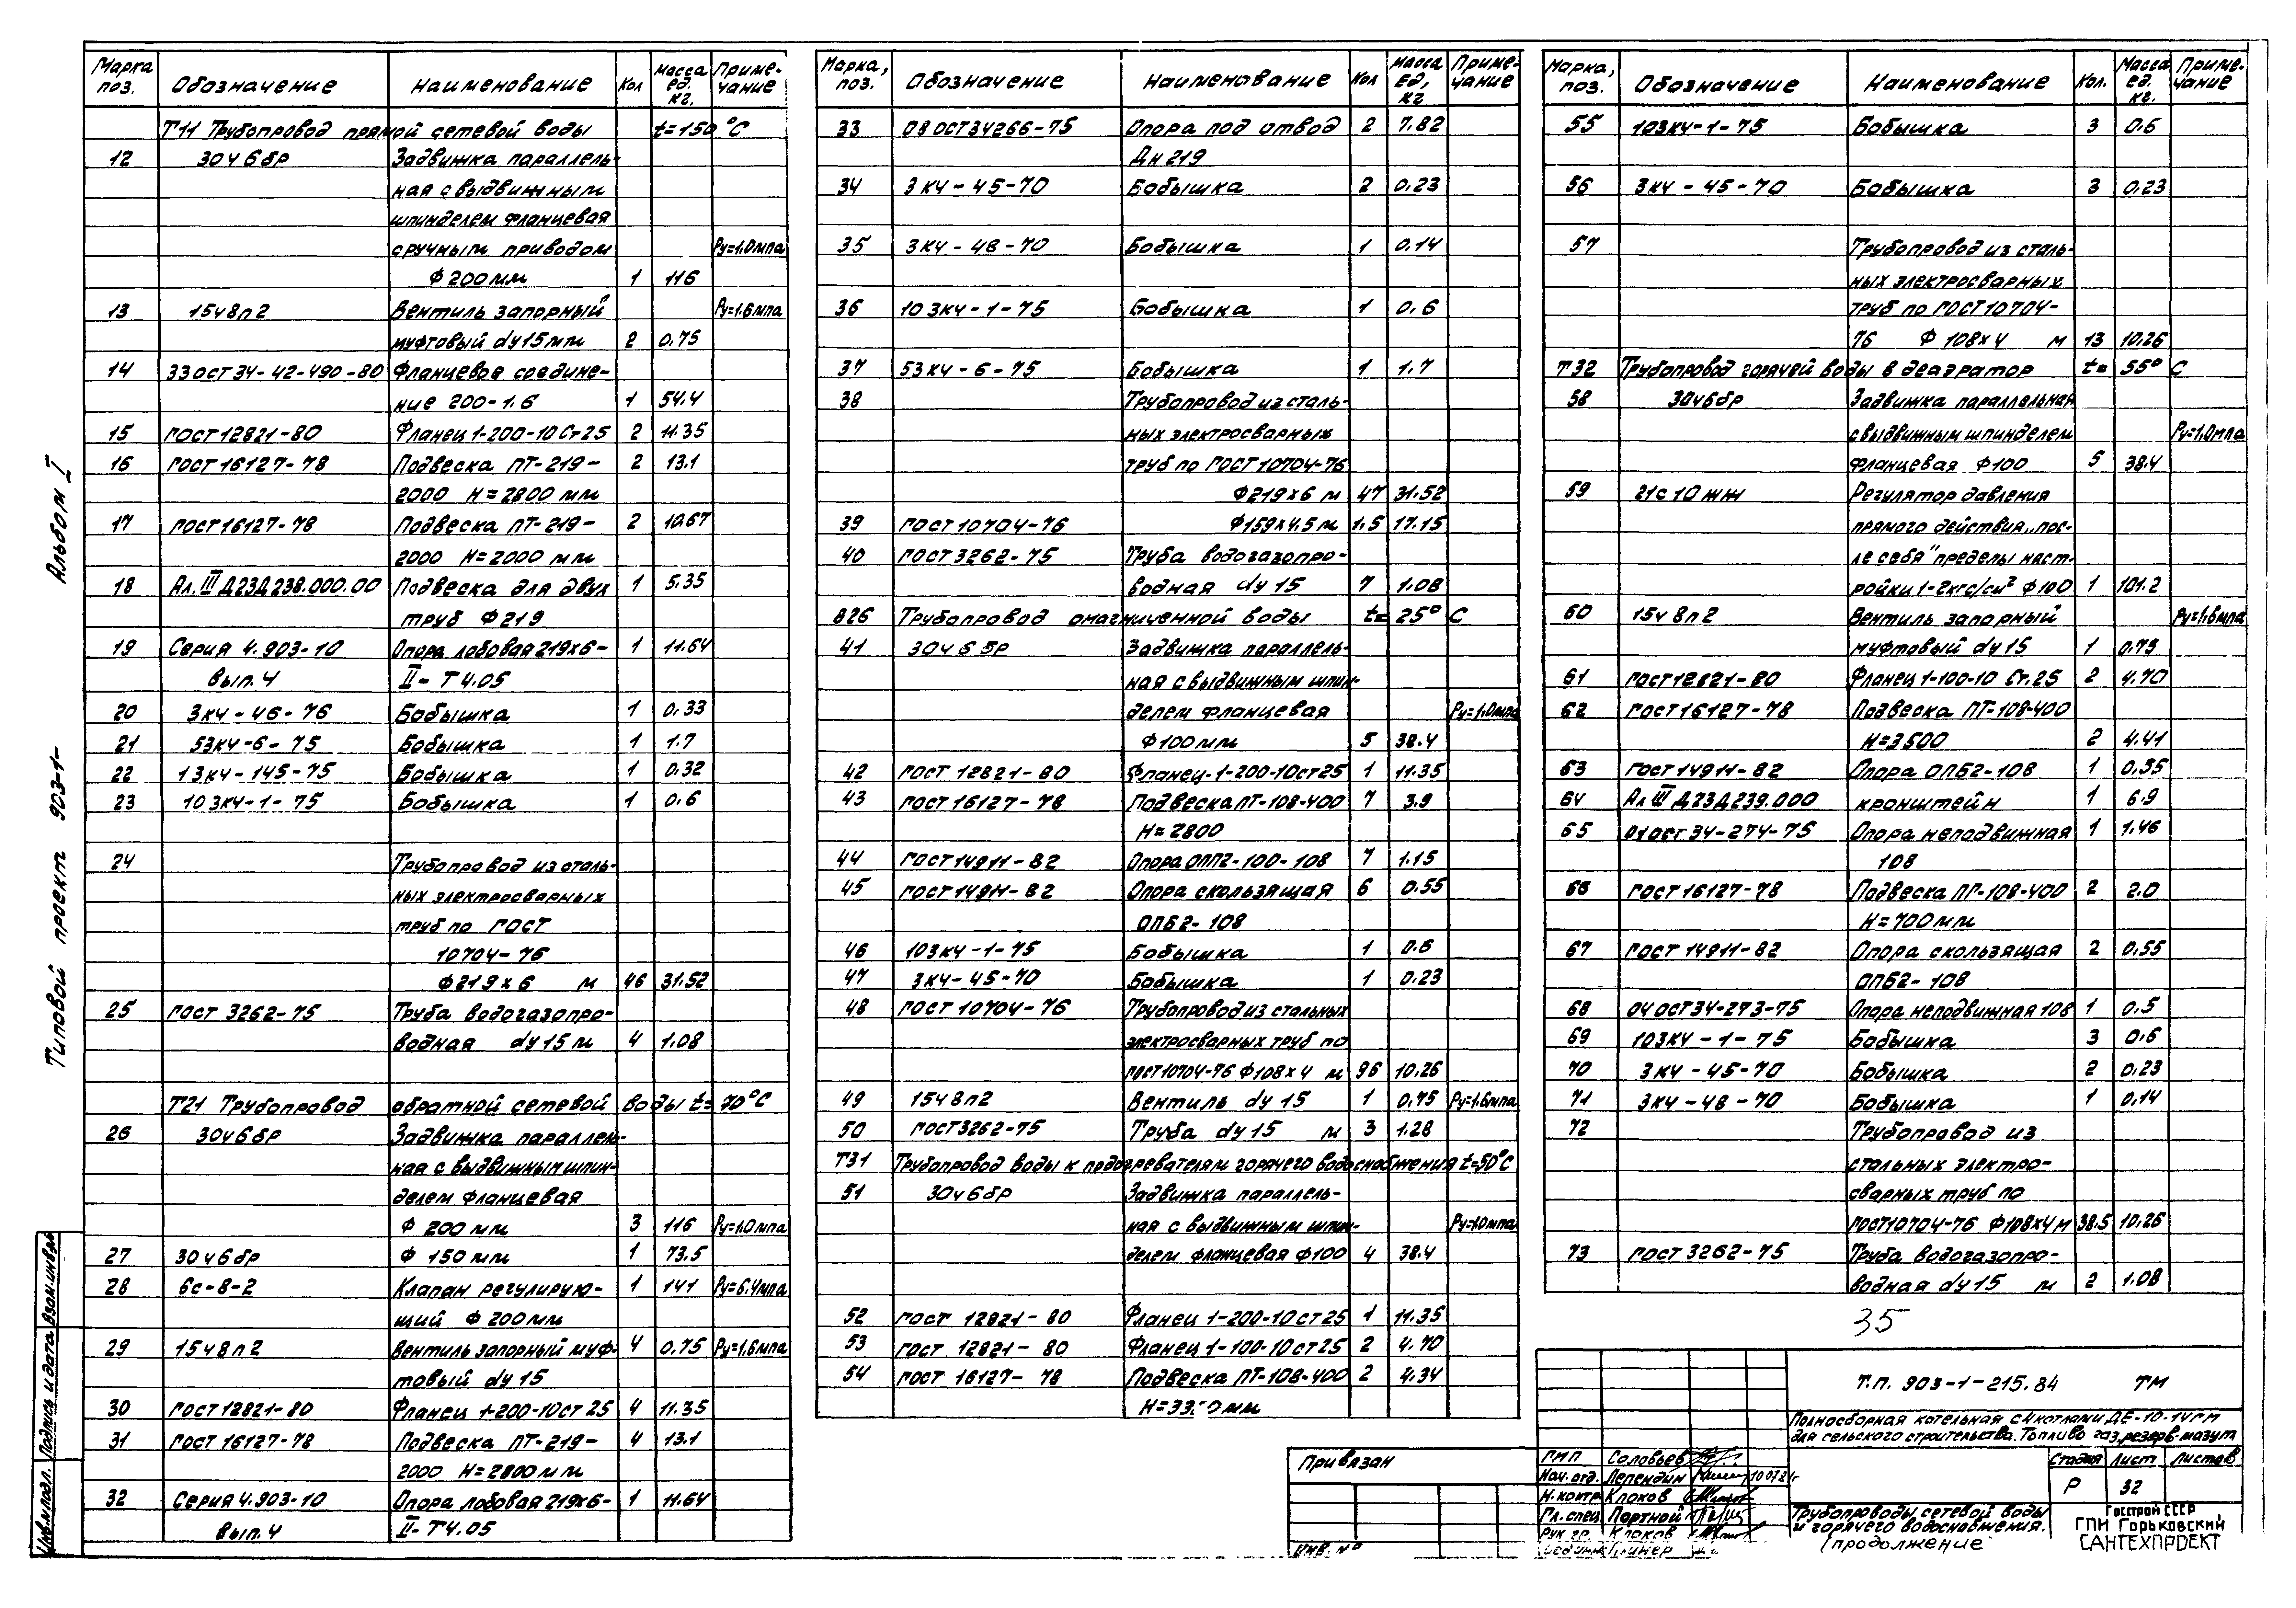 Альбом I
Типовой проект 903-1-
Марка поз. Обозначение Наименование Кол Масса ед. кг. Примечание
Т11 Трубопровод прямой сетевой воды t=150°C
12 30ч6бр Задвижка параллель-
ная с выдвижным
шпинделем фланцевая
с ручным приводом Ру=1.0мпа
Ф 200мм 1 116
13 15ч8п2 Вентиль запорный Ру=1.6мпа
муфтовый dу15мм 2 0,75
14 33 ОСТ 34-42-490-80 Фланцевое соедине-
ние 200-1.6 1 54.4
15 ГОСТ 12821-80 Фланец 1-200-10 Ст25 2 11.35
16 ГОСТ 16127-78 Подвеска ПТ-219- 2 13.1
2000 Н=2800 мм
17 ГОСТ 16127-78 Подвеска ПТ-219- 2 10.67
2000 Н=2000 мм
18 Ал. III Д23Д238.000.00 Подвеска для двух 1 5.35
труб Ф219
19 Серия 4.903-10 Опора лобовая 219х6- 1 11.64
Вып.4 II-Т4.05
20 3К4-46-76 Бобышка 1 0.33
21 53К4-6-75 Бобышка 1 1.7
22 13К4-145-75 Бобышка 1 0.32
23 103К4-1-75 Бобышка 1 0.6
24 Трубопровод из сталь-
ных электросварных
труб по ГОСТ
10704-76
Ф219х6 м 46 31.52
25 ГОСТ 3262-75 Труба водогазопро-
водная dу15 м 4 1.08
Т21 Трубопровод обратной сетевой воды t= 70°C
26 30ч6бр Задвижка параллель-
ная с выдвижным шпин-
делем фланцевая
Ф 200 мм 3 116 Ру=1.0мпа
27 30ч6бр Ф 150 мм 1 73.5
28 6с-8-2 Клапан регулирую- 1 141 Ру=6.4мпа
щий Ф 200мм
29 15ч8п2 Вентиль запорный муф- 4 0.75 Ру=1,6мпа
товый dу15
30 ГОСТ 12821-80 Фланец 1-200-10ст 25 4 11.35
31 ГОСТ 16127-78 Подвеска ПТ-219- 4 13.1
2000 Н=2800мм
32 Серия 4.903-10 Опора лобовая 219х6- 1 11.64
Вып.4 II-Т4.05
Марка, поз. Обозначение Наименование Кол Масса ед, кг Примечание
33 08 ОСТ34266-75 Опора под отвод 2 7.82
Дн 219
34 3К4-45-70 Бобышка 2 0.23
35 3К4-48-70 Бобышка 1 0.14
36 103К4-1-75 Бобышка 1 0.6
37 53К4-6-75 Бобышка 1 1.7
38 Трубопровод из сталь-
ных электросварных
труб по ГОСТ 10704-76
Ф219х6 м 47 31.52
39 ГОСТ 10704-76 Ф159х4.5 м 1.5 17.15
40 ГОСТ 3262-75 Труба водогазопро-
водная dу 15 7 1.08
В26 Трубопровод омагниченной воды t= 25° C
41 30ч6бр Задвижка параллель-
ная с выдвижным шпин-
делем фланцевая Ру=1,0мпа
Ф100мм 5 38.4
42 ГОСТ 12821-80 Фланец-1-200-10ст25 1 11.35
43 ГОСТ 16127-78 Подвеска ПТ-108-400 7 3.9
Н=2800
44 ГОСТ 14911-82 Опора ОПП2-100-108 7 1.15
45 ГОСТ 14911-82 Опора скользящая 6 0.55
ОПБ2-108
46 103К4-1-75 Бобышка 1 0.6
47 3К4-45-70 Бобышка 1 0.23
48 ГОСТ 10704-76 Трубопровод из стальных
электросварных труб по
ГОСТ10704-76 Ф108х4 м 96 10.26
49 15ч8п2 Вентиль dу 15 1 0.75 Ру=1.6мпа
50 ГОСТ3262-75 Труба dу15 м 3 1.28
Т31 Трубопровод воды к подогревателям горячего водоснабжения t=50°C
51 30ч6бр Задвижка параллель-
ная с выдвижным шпин- Ру=1.0мпа
делем фланцевая Ф100 4 38.4
52 ГОСТ 12821-80 Фланец 1-200-10 ст 25 1 11.35
53 ГОСТ 12821-80 Фланец 1-100-10 ст 25 2 4.70
54 ГОСТ 16127-78 Подвеска ПТ-108-400 2 4.34
Марка, поз. Обозначение Наименование Кол. Масса ед. кг. Примечание
55 103К4-1-75 Бобышка 3 0.6
56 3К4-45-70 Бобышка 3 0.23
57 Трубопровод из сталь-
ных электросварных
труб по ГОСТ 10704-
76 Ф 108х4 м 13 10.26
Т32 Трубопровод горячей воды в деаэратор t= 55° C
58 30ч6бр Задвижка параллельная
с выдвижным шпинделем Ру=1,0мпа
фланцевая Ф100 5 38.4
59 21с10нж Регулятор давления
прямого действия „пос-
ле себя" пределы наст-
ройки 1-2кгс/см² Ф100 1 101.2
60 15ч8п2 Вентиль запорный Ру=1.6мпа
муфтовый dу15 1 0.75
61 ГОСТ 12821-80 Фланец 1-100-10 Ст.25 2 4.70
62 ГОСТ 16127-78 Подвеска ПТ-108-400
Н=3500 2 4.41
63 ГОСТ 14911-82 Опора ОПБ2-108 1 0.55
64 Ал III Д23Д239.000 кронштейн 1 6.9
65 01ОСТ 34-274-75 Опора неподвижная 1 1.46
108
66 ГОСТ 16127-78 Подвеска ПГ-108-400 2 2.0
Н=700мм
67 ГОСТ 14911-82 Опора скользящая 2 0.55
ОПБ2-108
68 04 ОСТ34-273-75 Опора неподвижная 108 1 0.5
69 103К4-1-75 Бобышка 3 0.6
70 3К4-45-70 Бобышка 2 0.23
71 3К4-48-70 Бобышка 1 0.14
72 Трубопровод из
стальных электро-
сварных труб по
ГОСТ10704-76 Ф108х4 м 38.5 10.26
73 ГОСТ 3262-75 Труба водогазопро-
водная dу15 м 2 1.08
35
Т.П. 903-1-215.84 ТМ
Полносборная котельная с 4 котлами ДЕ-10-14ГМ
для сельского строительства. Топливо газ, резерв-мазут
Стадия Лист Листов
Р 32
Трубопроводы сетевой воды
и горячего водоснабжения.
(продолжение
Госстрой СССР
ГПИ Горьковский
САНТЕХПРОЕКТ
Привязан
Инв. №
ГИП Соловьев
Нач. отд. Лепендин
Н.контр. Клоков
Гл. спец Портной
Рук гр. Клоков
Инв.№подл. Подпись и дата Взам.инв.№